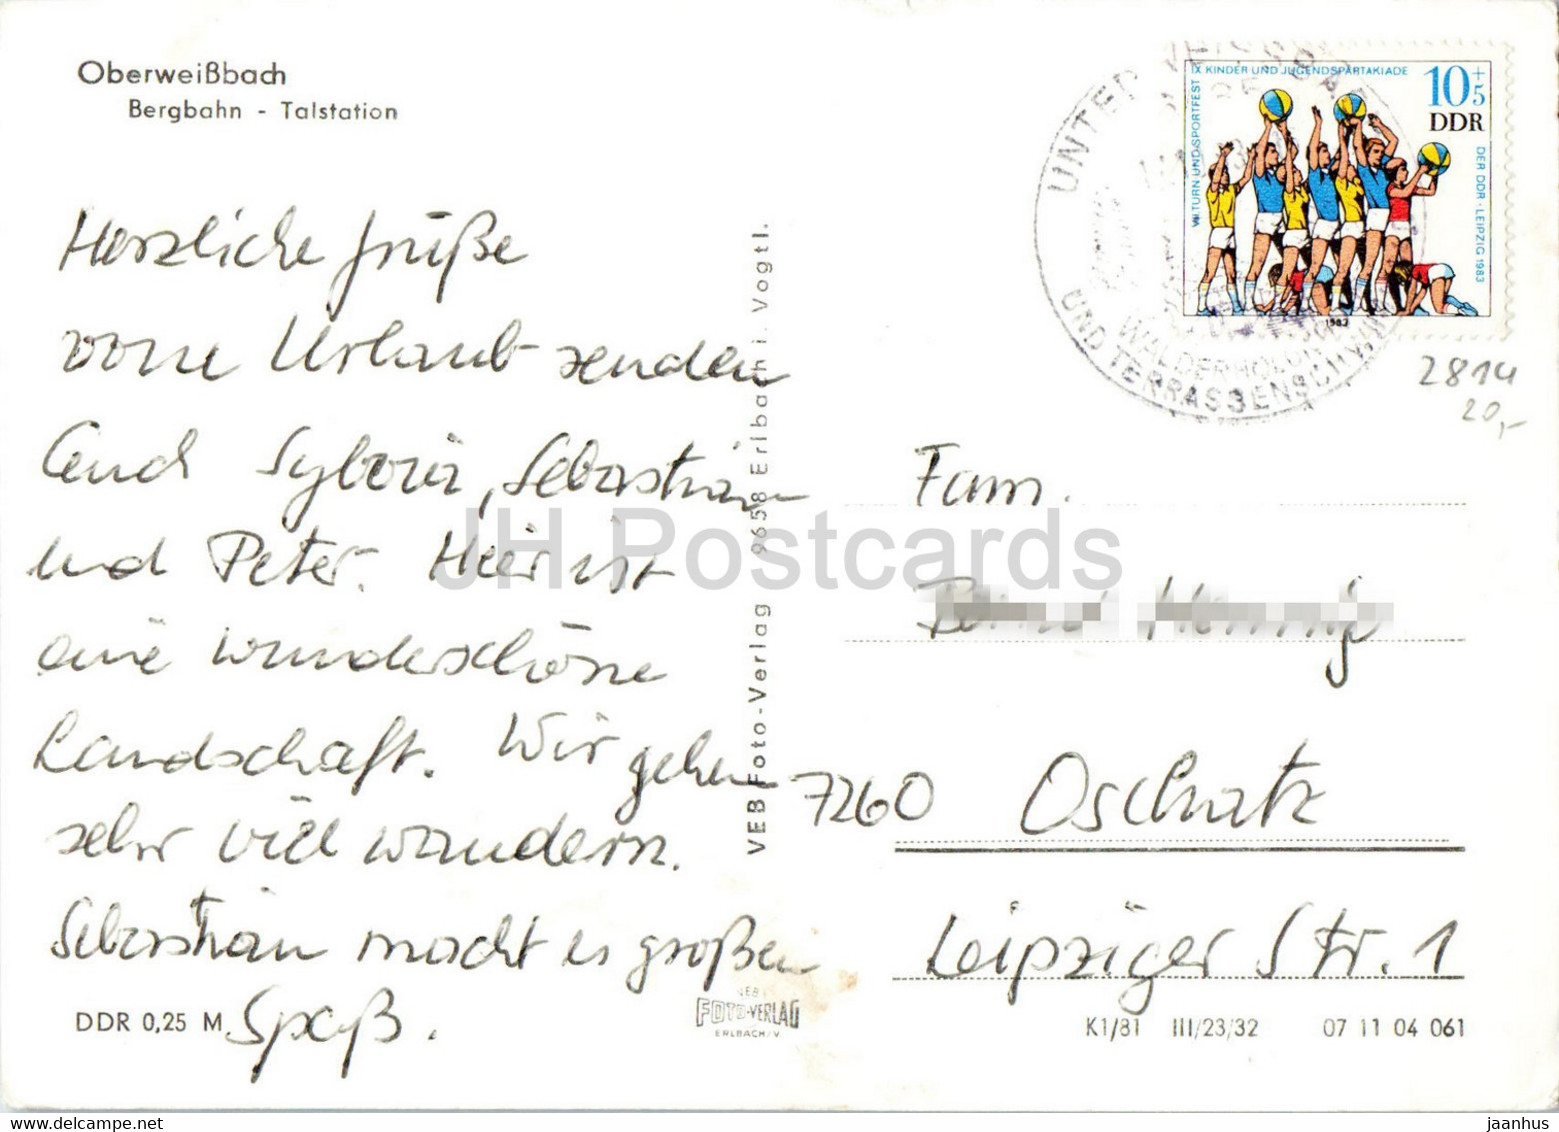 Oberweißbach
Bergbahn - Talstation
Herzliche Grüße
vom Urlaub senden
Euch Sylvia, Sebastian
und Peter. Hier ist
eine wunderschöne
Landschaft. Wir gehen
sehr viel wandern.
Sebastian macht es großen
Spaß.
DDR 0,25 M
VEB Foto-Verlag 9658 Erlbach i. Vogtl.
VEB
FOTO-VERLAG
ERLBACH/V
IX KINDER UND JUGENDSPARTAKIADE
VII TURN UND SPORTFEST
DER DDR · LEIPZIG 1983
10+5
DDR
1983
UNTER
WALDERHOLUNG
UND TERRASSENSCHWIMM
2814
20,-
Fam.
7260 Oschatz
Leipziger Str. 1
K1/81 III/23/32 07 11 04 061
JH Postcards
jaanhus
www.delcampe.net